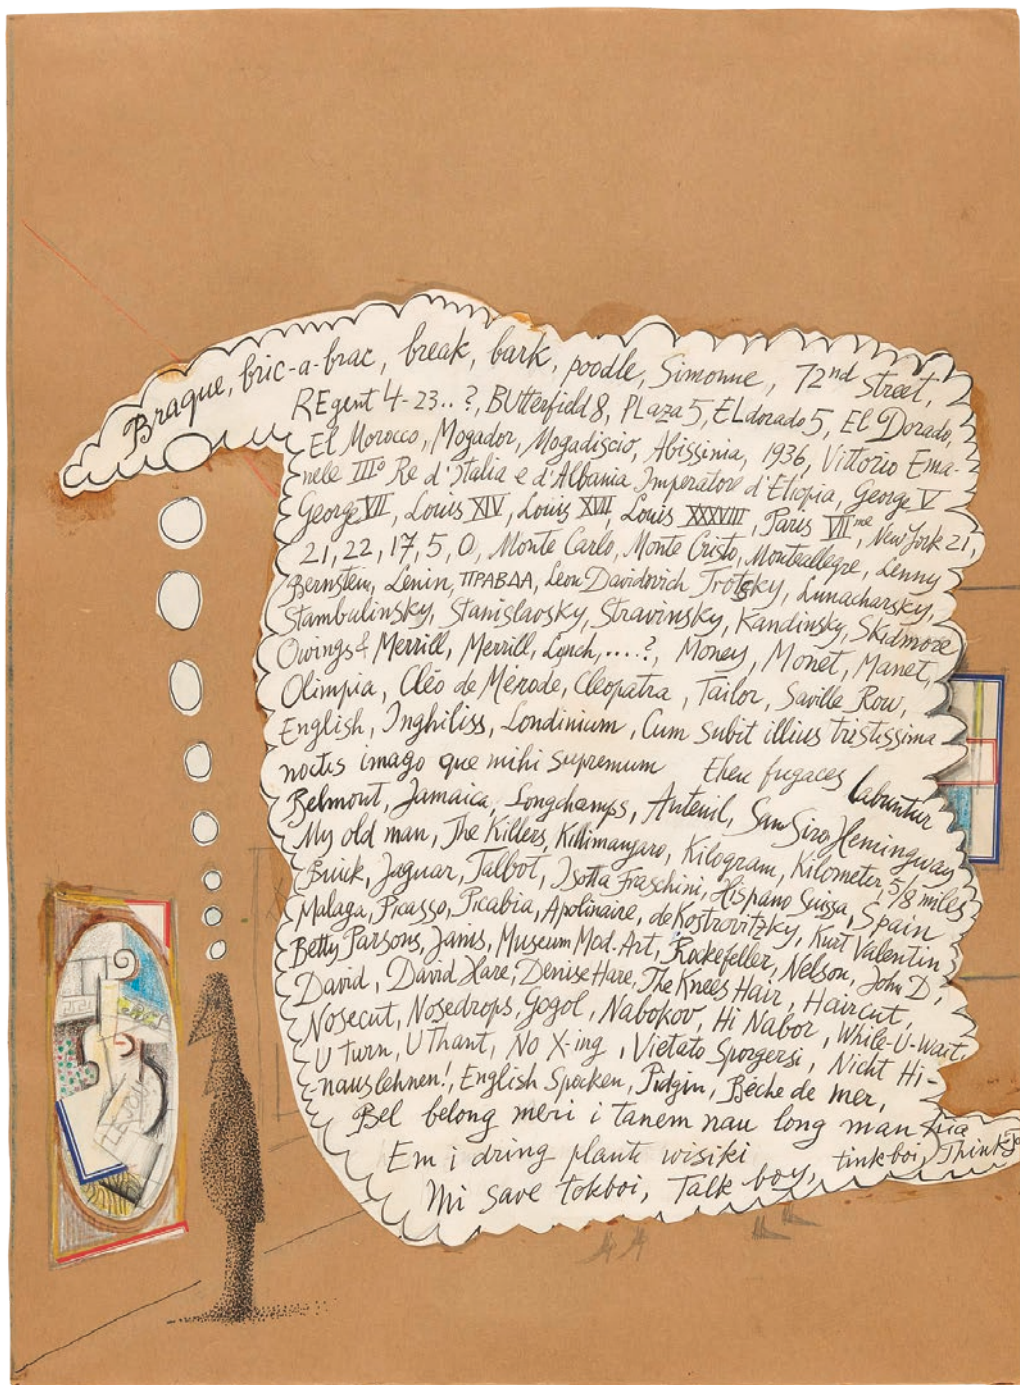 Braque, bric-a-brac, break, bark, poodle, Simonne, 72nd Street,
REgent 4-23..?, BUtterfield 8, PLaza 5, ELdorado 5, El Dorado,
El Morocco, Mogador, Mogadiscio, Abissinia, 1936, Vittorio Ema-
nele IIIº Re d'Italia e d'Albania Imperatore d'Etiopia, George V
George VII, Louis XIV, Louis XVII, Louis XXXVIII, Paris VIIme, New York 21,
21, 22, 17, 5, 0, Monte Carlo, Monte Cristo, Monteallegre, Lenny
Bernstein, Lenin, ПРАВДА, Leon Davidovich Trotsky, Lunacharsky,
Stambulinsky, Stanislavsky, Stravinsky, Kandinsky, Skidmore
Owings & Merrill, Merrill, Lynch,....?, Money, Monet, Manet,
Olimpia, Cléo de Mérode, Cleopatra, Tailor, Saville Row,
English, Inghiliss, Londinium, Cum subit illius tristissima
noctis imago que mihi supremum Eheu fugaces labuntur
Belmont, Jamaica, Longchamps, Auteuil, San Siro, Hemingway
My old man, The Killers, Killimanjaro, Kilogram, Kilometer, 5/8 miles
Buick, Jaguar, Talbot, Isotta Fraschini, Hispano Suissa, Spain
Malaga, Picasso, Picabia, Apolinaire, de Kostrovitzky, Kurt Valentin
Betty Parsons, Janis, Museum Mod. Art, Rockefeller, Nelson, John D,
David, David Hare, Denise Hare, The Knees Hair, Haircut,
Nosecut, Nosedrops, Gogol, Nabokov, Hi Nabor, While-U-wait,
U turn, U Thant, No X-ing, Vietato Sporgersi, Nicht Hi-
nauslehnen!, English Spocken, Pidgin, Bèche de mer,
Bel belong meri i tanem nau long man
Em i dring planti wisiki tinkboi, Think
Mi save tokboi, Talk boy,